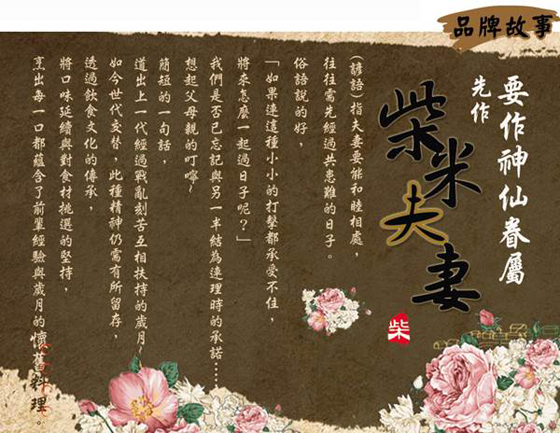 品牌故事
要作神仙眷屬
先作
柴米夫妻
柴
(諺語)指夫妻要能和睦相處，
往往需先經過共患難的日子。
俗語說的好，
「如果連這種小小的打擊都承受不住，
將來怎麼一起過日子呢？」
我們是否已忘記與另一半結為連理時的承諾…
想起父母親的叮嚀~
簡短的一句話，
道出上一代經過戰亂刻苦互相扶持的歲月~
如今世代交替，此種精神仍需有所留存，
透過飲食文化的傳承，
將口味延續與對食材挑選的堅持，
烹出每一口都蘊含了前輩經驗與歲月的懷舊料理。